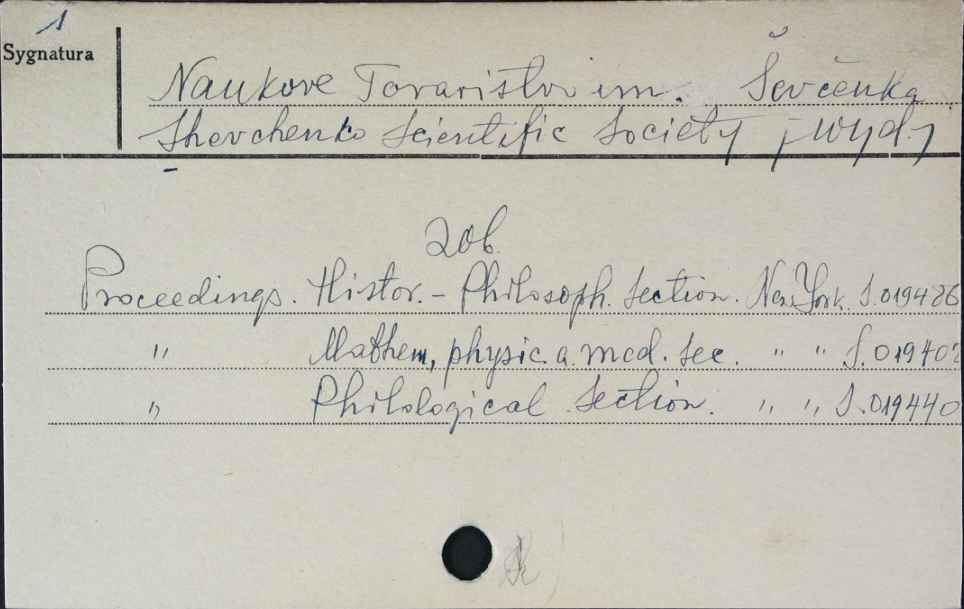 1
Sygnatura
Naukove Tovaristvo im. Ševčenka
Shevchenko Scientific Society ; wyd.
Zob.
Proceedings. Histor. - Philosoph. Section. New York. S.019486
" Mathem, physic. a. med. sec. " " S.019402
" Philological Section. " " S.019440